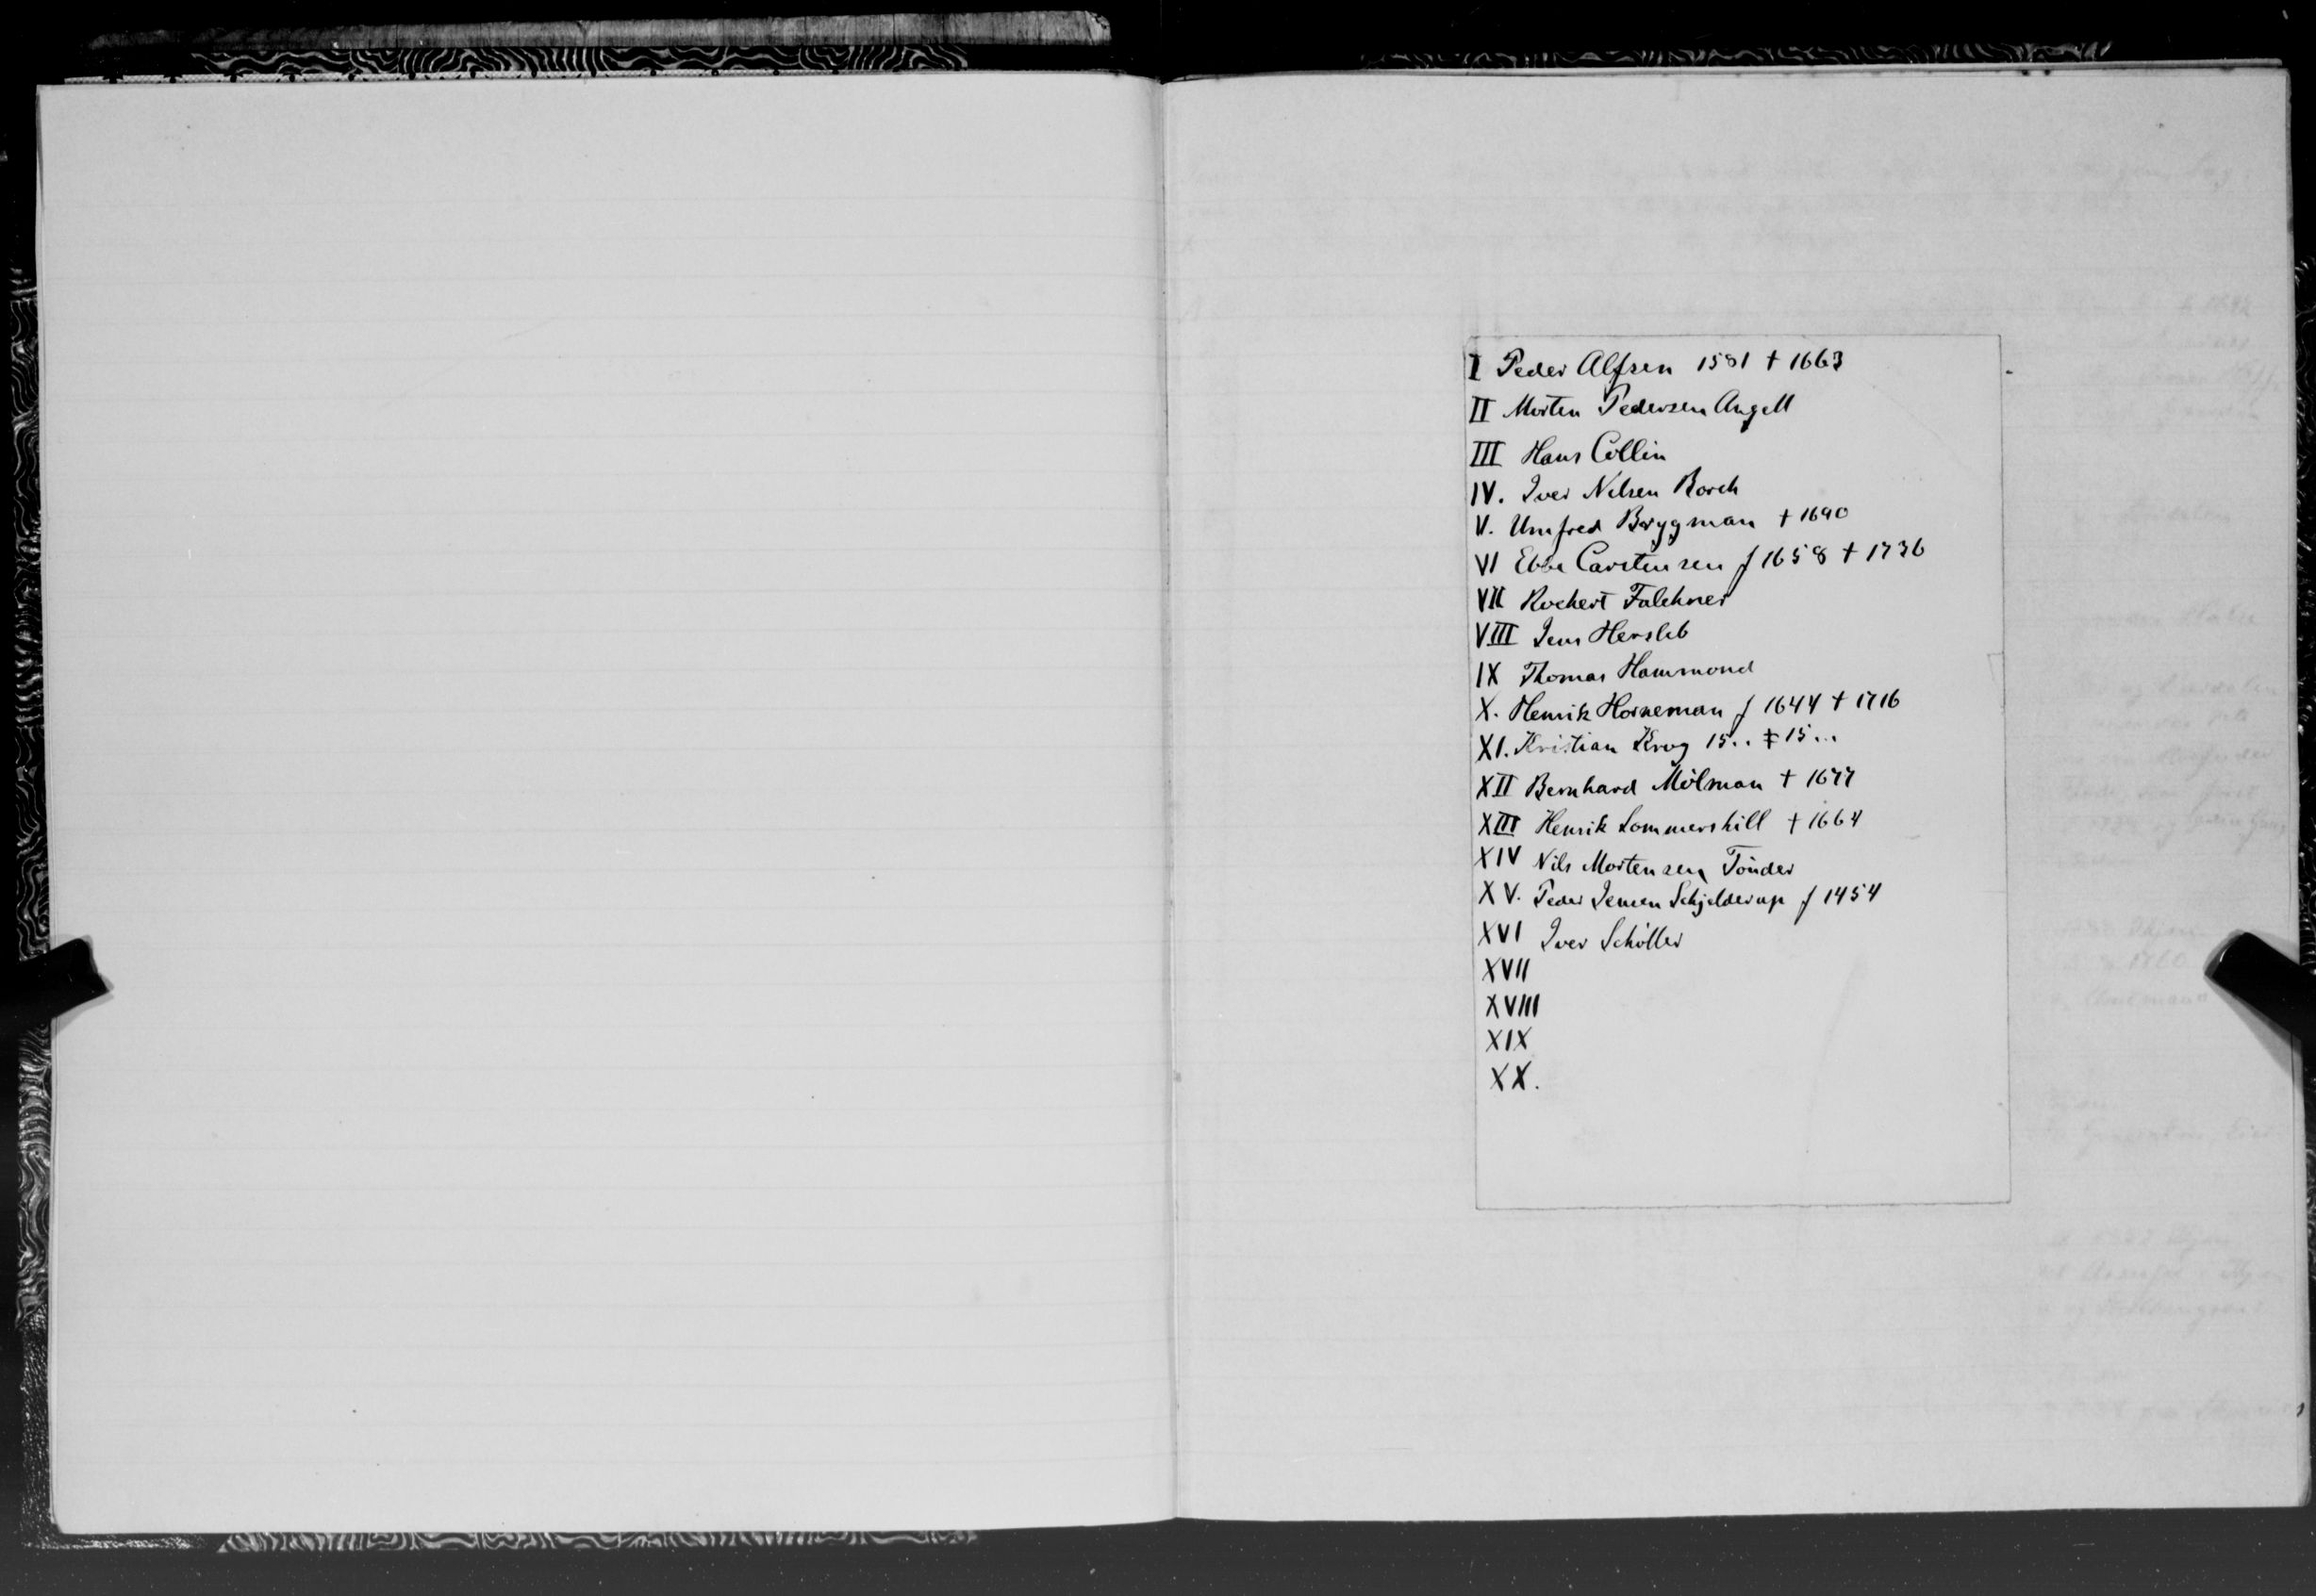 I Peder Alfsen 1581 † 1663
II Morten Pedersen Angell
III Hans Collin
IV. Iver Nilsen Borch
V. Umfred Brygman † 1690
VI Ebbe Carstensen f 1658 † 1736
VII Rochert Falchner
VIII Jens Hersleb
IX Thomas Hammond
X. Henrik Horneman f 1644 † 1716
XI. Kristian Krog 15.. ‡ 15...
XII Bernhard Mölman † 1677
XIII Henrik Sommershill † 1664
XIV Nils Mortensen Tönder
XV. Peder Jensen Schjelderup f 1454
XVI Iver Schöller
XVII
XVIII
XIX
XX.